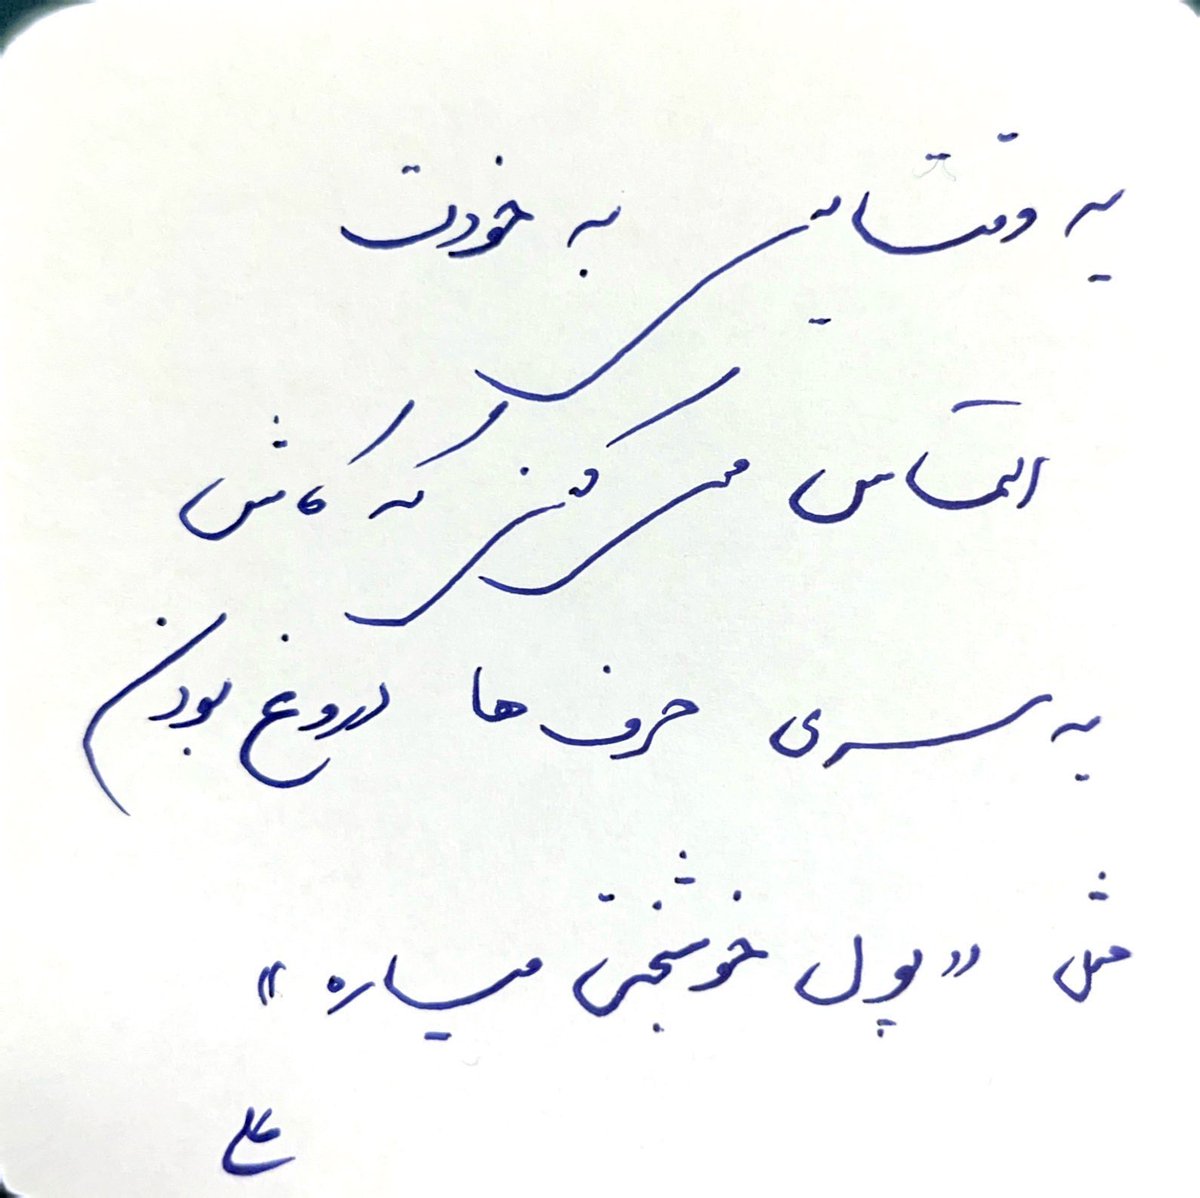 یه وقتایی به خودت
التماس می کنی که کاش
یه سری حرف ها دروغ بودن
مثل «پول خوشبختی میاره»
علی